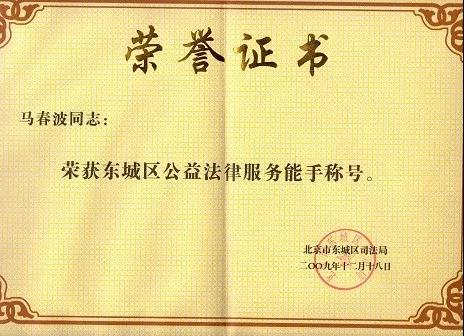 荣誉证书
马春波同志：
荣获东城区公益法律服务能手称号。
北京市东城区司法局
二〇〇九年十二月十八日